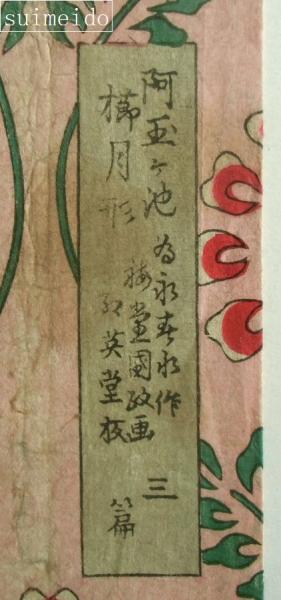 suimeido
阿玉ヶ池
櫛月形
為永春水作
梅堂國政画
紅英堂板
三篇